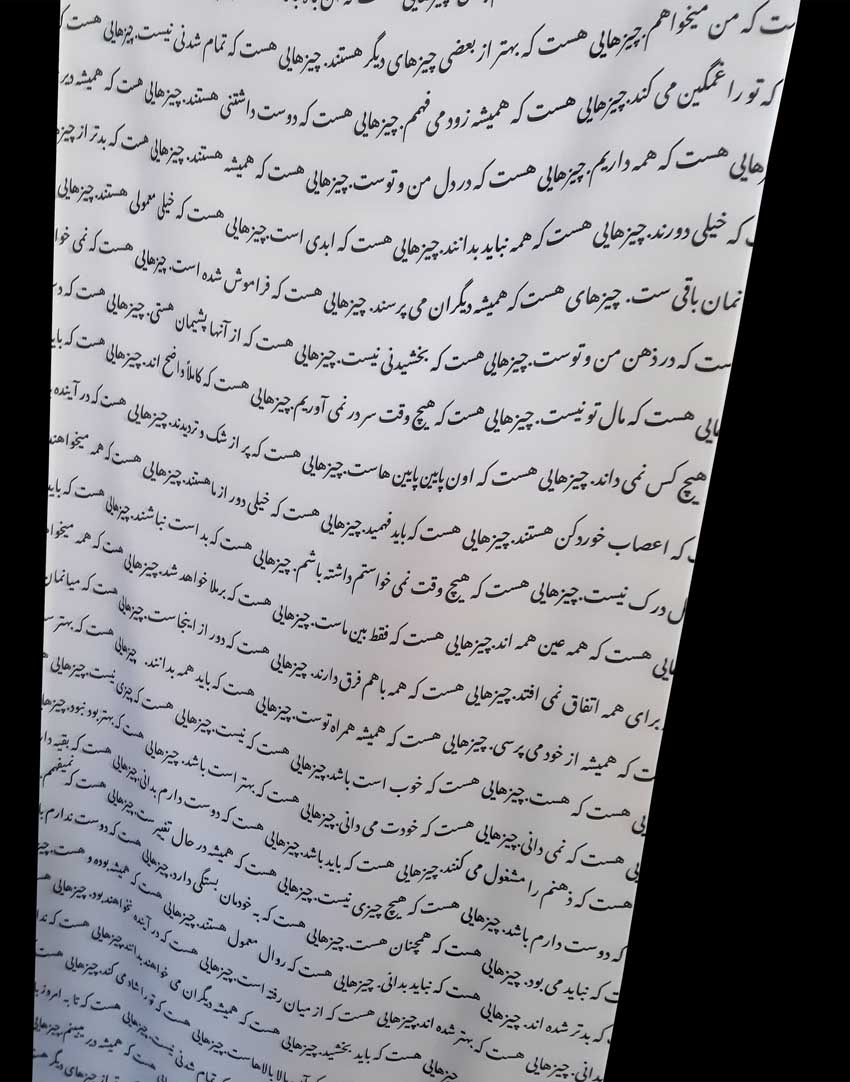 ست که من میخواهم. چیزهایی هست که بهتر از بعضی چیزهای دیگر هستند. چیزهایی هست که تمام شدنی نیست. چیزهایی هست
که تو را غمگین می کند. چیزهایی هست که همیشه زود می فهمم. چیزهایی هست که دوست داشتنی هستند. چیزهایی هست که همیشه
هایی هست که همه داریم. چیزهایی هست که در دل من و توست. چیزهایی هست که همیشه هستند. چیزهایی هست که بدتر از
که خیلی دورند. چیزهایی هست که همه نباید بدانند. چیزهایی هست که ابدی است. چیزهایی هست که خیلی معمولی هستند. چیزهایی
نمان باقی ست. چیزهای هست که همیشه دیگران می پرسند. چیزهایی هست که فراموش شده است. چیزهایی هست که نمی
ست که در ذهن من و توست. چیزهایی هست که بخشیدنی نیست. چیزهایی هست که از آنها پشیمان هستی. چیزهایی هست که
هایی هست که مال تو نیست. چیزهایی هست که هیچ وقت سر در نمی آوریم. چیزهایی هست که کاملاً واضح اند. چیزهایی هست که
هیچ کس نمی داند. چیزهایی هست که اون پایین پایین هاست. چیزهایی هست که پر از شک و تردیدند. چیزهایی هست که در آینده
که اعصاب خوردکن هستند. چیزهایی هست که باید فهمید. چیزهایی هست که خیلی دور از ما هستند. چیزهایی هست که همه میخواهند
درک نیست. چیزهایی هست که هیچ وقت نمی خواستم داشته باشم. چیزهایی هست که بد است نباشند. چیزهایی هست که باید
هایی هست که همه عین همه اند. چیزهایی هست که فقط بین ماست. چیزهایی هست که برملا خواهد شد. چیزهایی هست که همه
برای همه اتفاق نمی افتد. چیزهایی هست که همه با هم فرق دارند. چیزهایی هست که دور از اینجاست. چیزهایی هست که میانمان
ت که همیشه از خود می پرسی. چیزهایی هست که همیشه همراه توست. چیزهایی هست که باید همه بدانند. چیزهایی هست که بهتر
یی هست که هست. چیزهایی هست که خوب است باشد. چیزهایی هست که نیست. چیزهایی هست که چیزی نیست. چیزهایی
یی هست که نمی دانی. چیزهایی هست که خودت می دانی. چیزهایی هست که بهتر است باشد. چیزهایی هست که بهتر بود نبود.
هست که ذهنم را مشغول می کنند. چیزهایی هست که باید باشد. چیزهایی هست که دوست دارم بدانی. چیزهایی هست که بقیه
که دوست دارم باشد. چیزهایی هست که هیچ چیزی نیست. چیزهایی هست که همیشه در حال تغییر ست. چیزهایی هست که نمیفهمم.
ت که نباید می بود. چیزهایی هست که همچنان هست. چیزهایی هست که به خودمان بستگی دارد. چیزهایی هست که دوست ندارم
که بدتر شده اند. چیزهایی هست که نباید بدانی. چیزهایی هست که روال معمول هستند. چیزهایی هست که همیشه بوده و هست.
بدانی. چیزهایی هست که بهتر شده اند. چیزهایی هست که از میان رفته است. چیزهایی هست که در آینده نخواهند بود. چیزهایی
چیزهایی هست که باید بخشید. چیزهایی هست که همیشه دیگران می خواهند بدانند. چیزهایی هست که
بالا بالاهاست. چیزهایی هست که تو را شاد می کند. چیزهایی هست
تمام شدنی نیست. چیزهایی هست که تا به امروز
هست که همیشه در چیزهایی
چیزهای دیگر